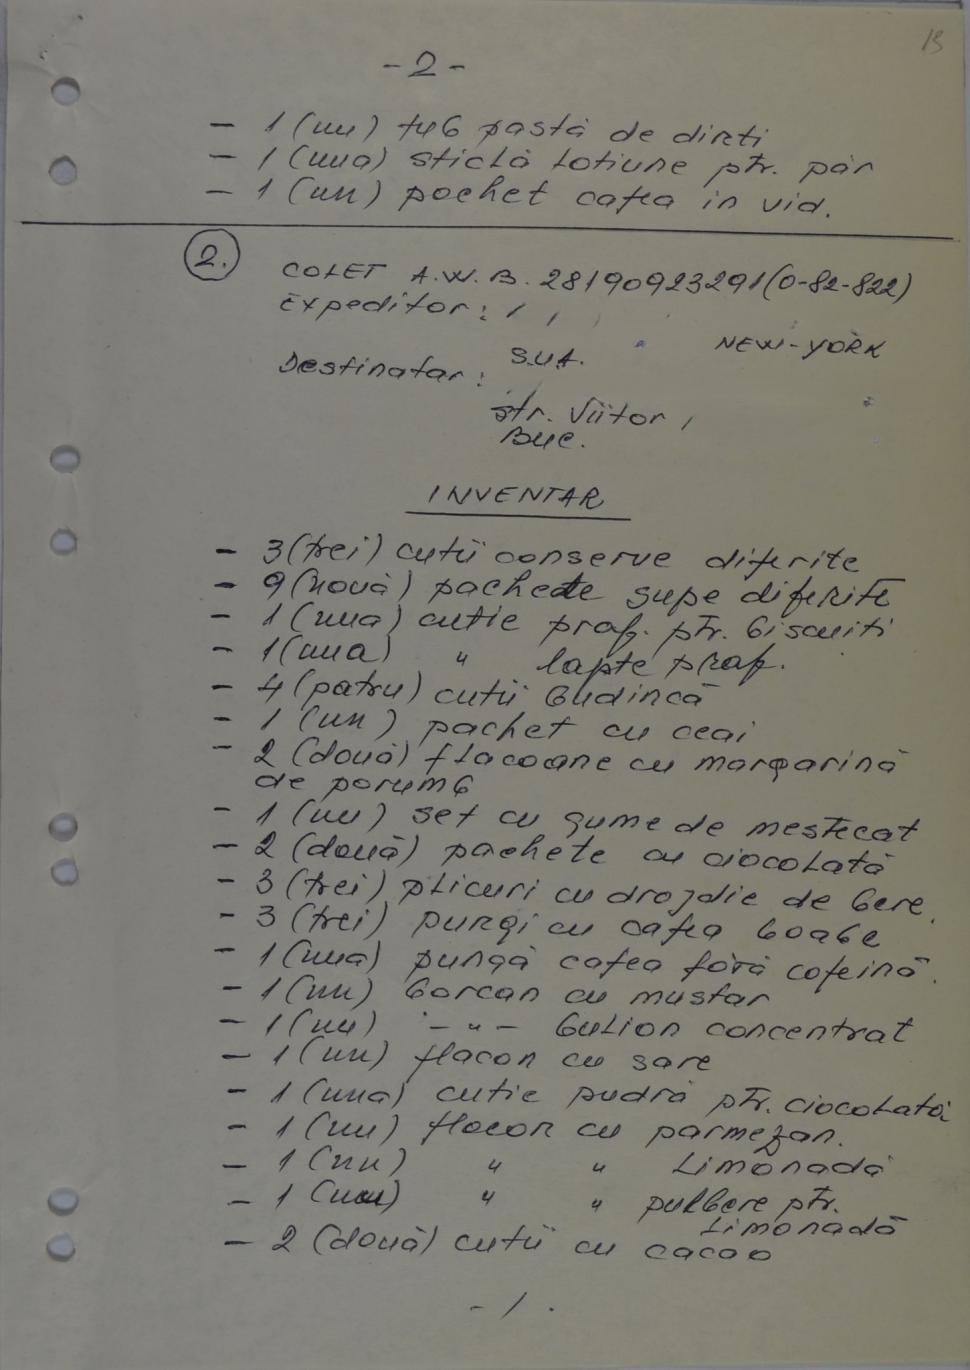 13
- 2 -
- 1 (un) tub pastă de dinti
- 1 (una) sticlă lotiune ptr. păr
- 1 (un) pachet cafea in vid.
2. COLET A.W.B. 28190923291 (0-82-822)
Expeditor: , ,
S.U.A. NEW-YORK
Destinatar:
str. Viitor,
Buc.
INVENTAR
- 3 (trei) cutii conserve diferite
- 9 (nouă) pachete supe diferite
- 1 (una) cutie praf. ptr. biscuiti
- 1 (una) " lapte praf.
- 4 (patru) cutii budincă
- 1 (un) pachet cu ceai
- 2 (două) flacoane cu margarină
de porumb
- 1 (un) set cu gume de mestecat
- 2 (două) pachete cu ciocolată
- 3 (trei) plicuri cu drojdie de bere.
- 3 (trei) pungi cu cafea boabe
- 1 (una) pungă cafea fără cofeină.
- 1 (un) borcan cu mustar
- 1 (un) - " - bulion concentrat
- 1 (un) flacon cu sare
- 1 (una) cutie pudră ptr. ciocolată
- 1 (un) flacon cu parmezan.
- 1 (un) " " Limonadă
- 1 (un) " " pulbere ptr.
Limonadă
- 2 (două) cutii cu cacao
- / .